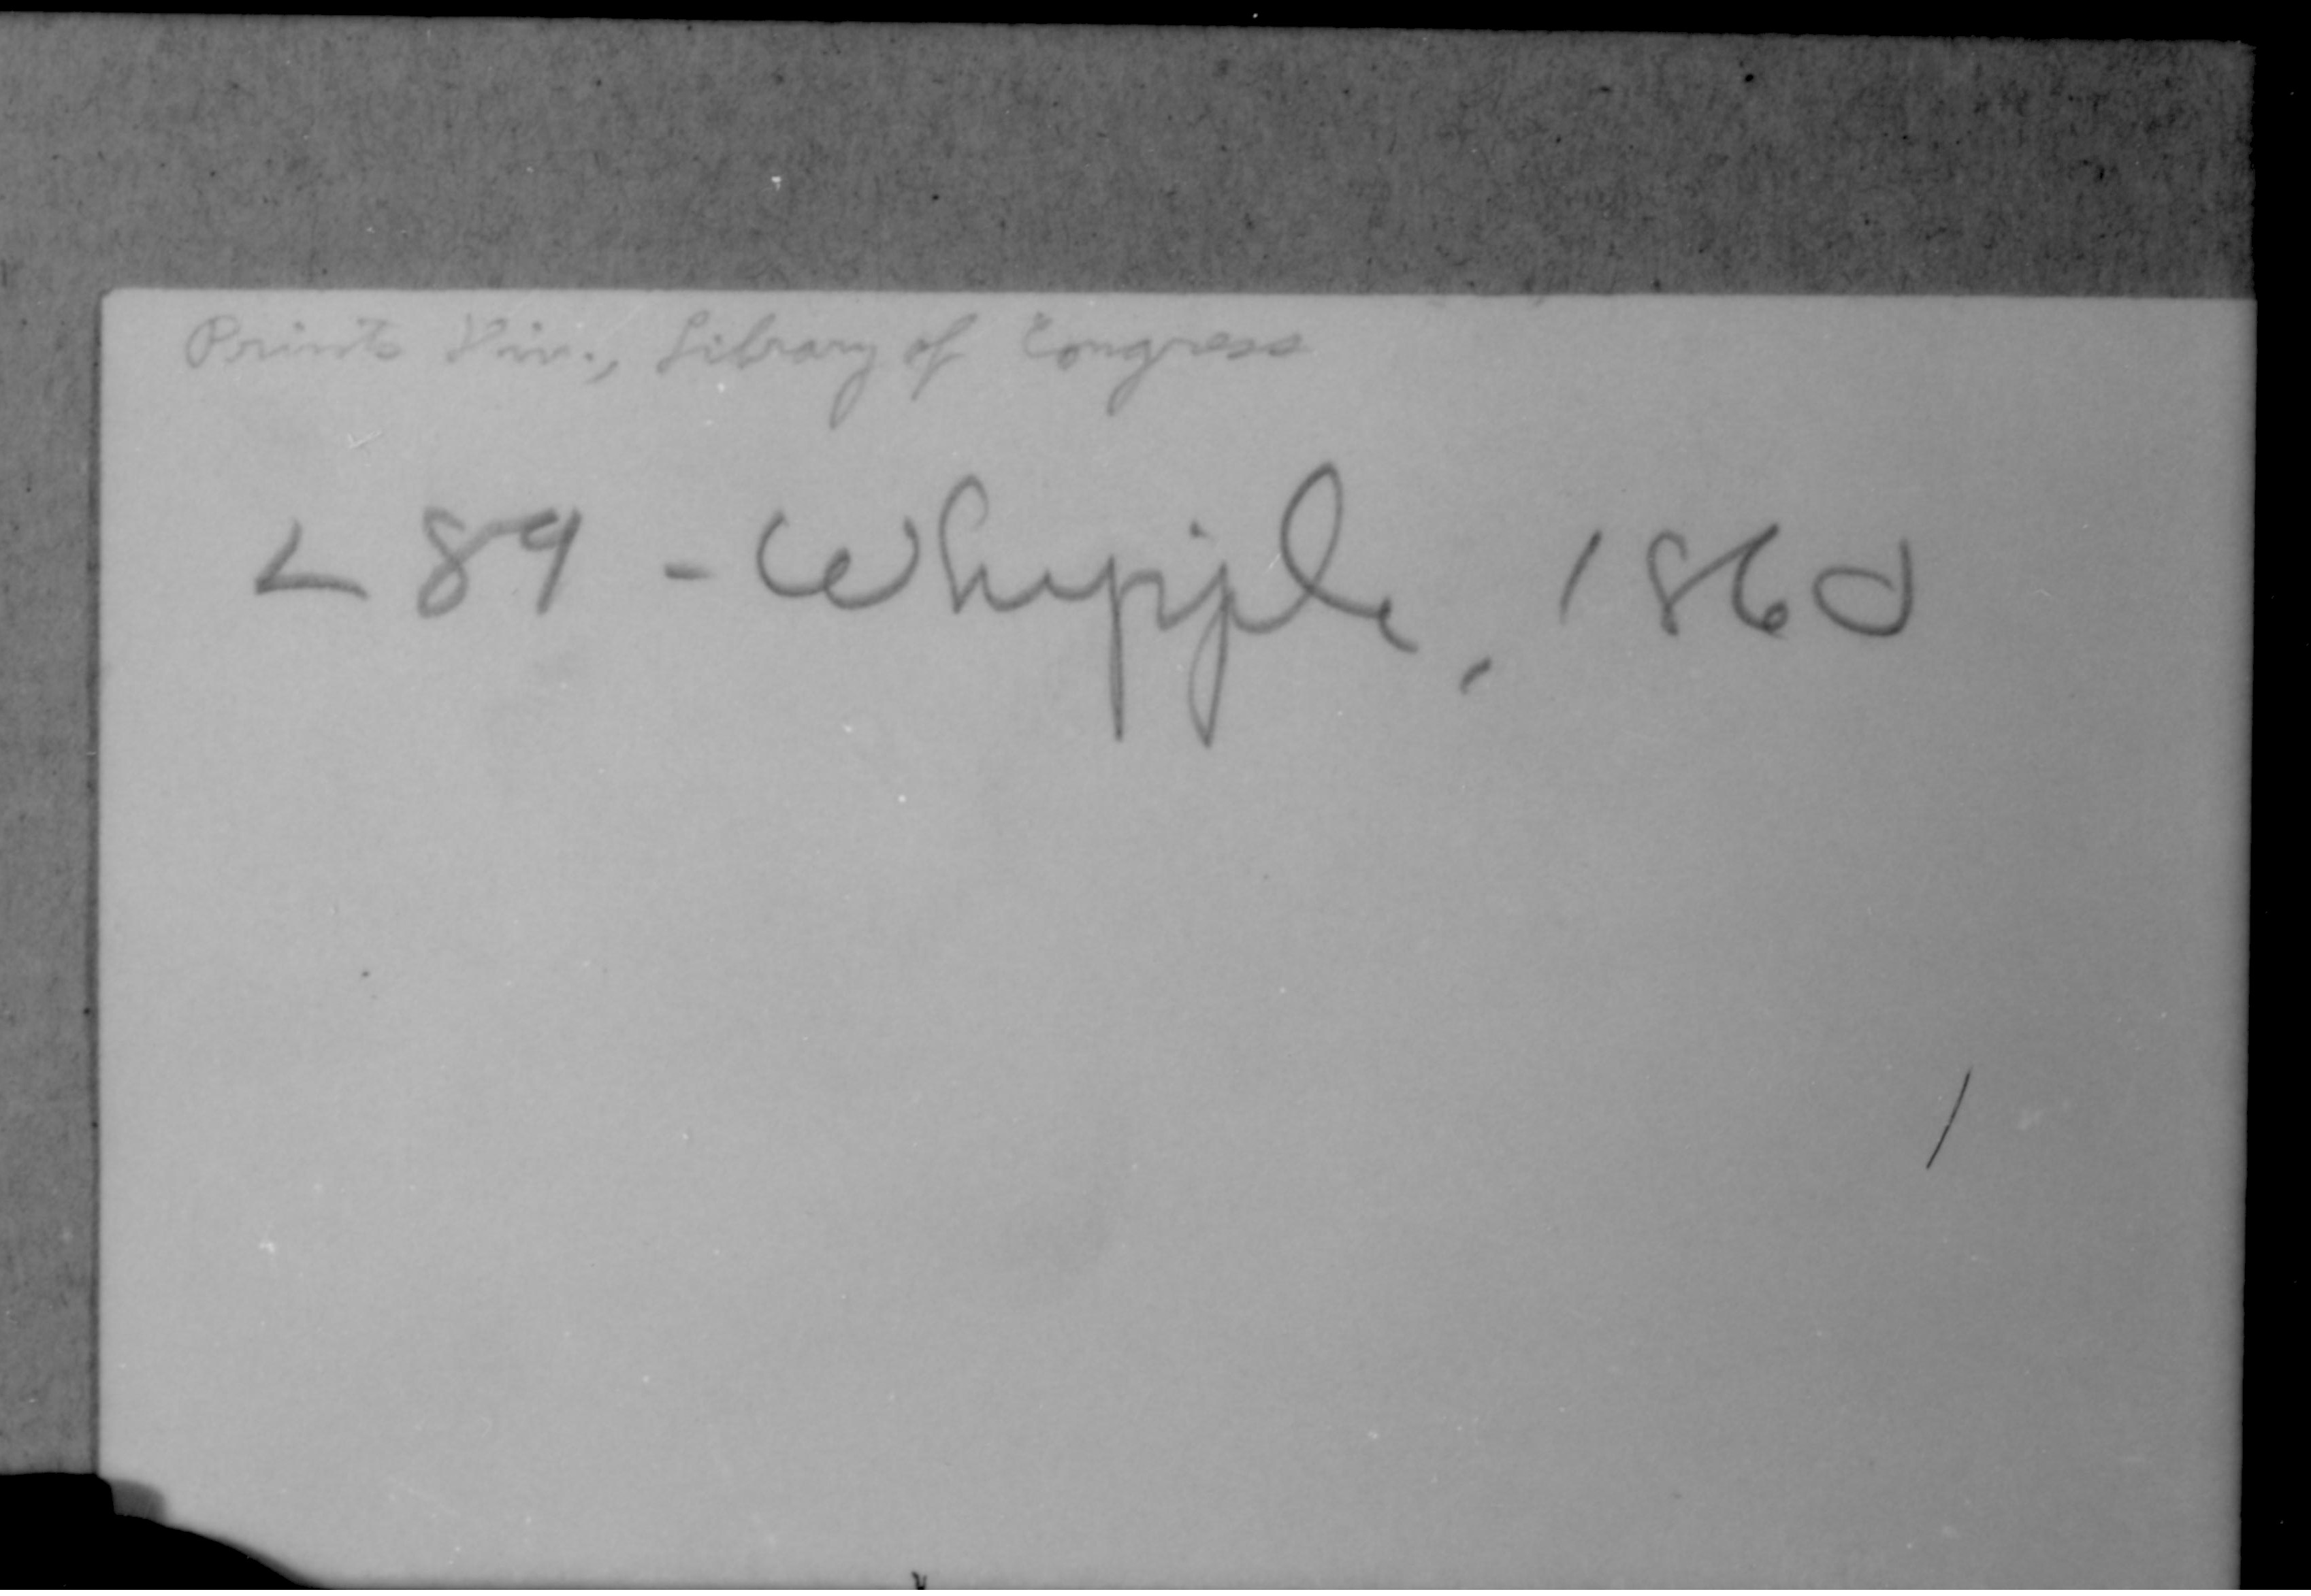 Prints Div., Library of Congress
L 89 - Whipple, 1860